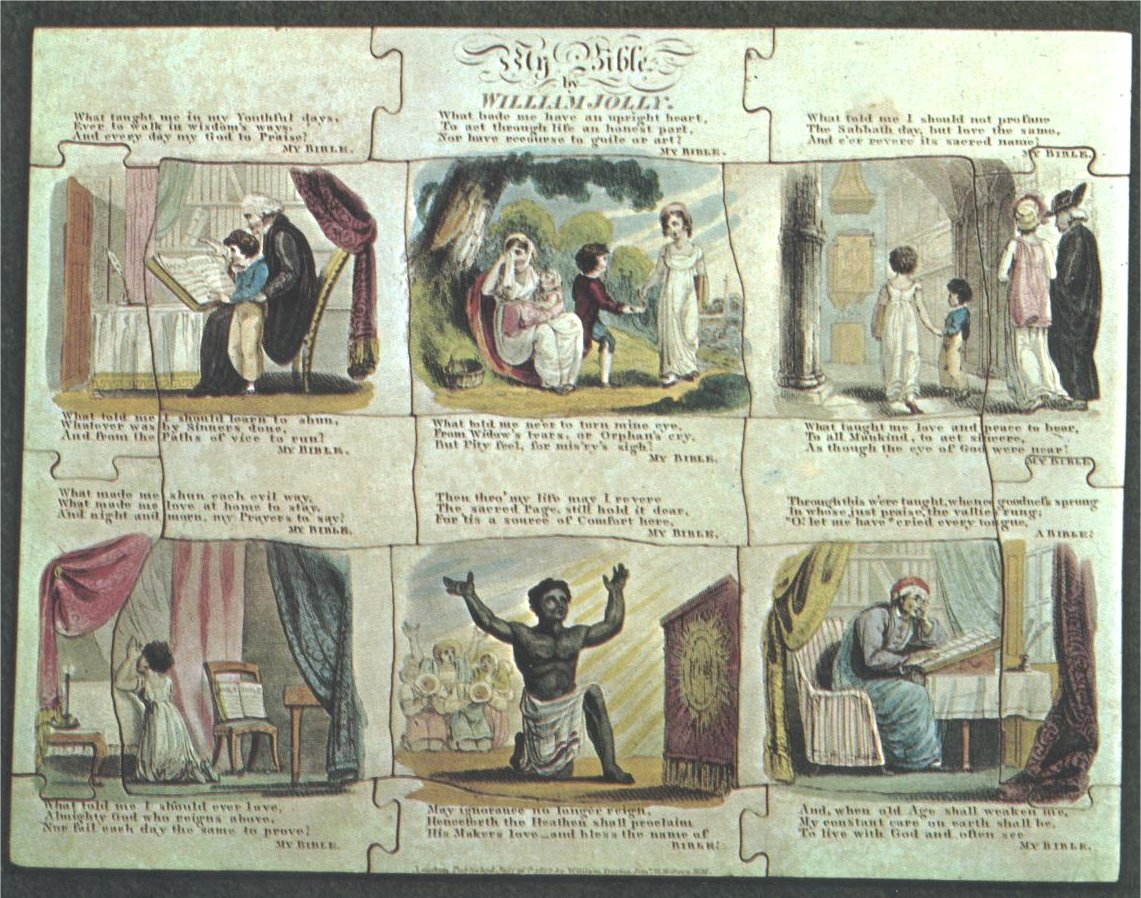 My Bible
by
WILLIAM JOLLY.
What taught me in my Youthful days,
Ever to walk in wisdom's ways,
And every day my God to Praise?
MY BIBLE.
What bade me have an upright heart,
To act through life an honest part,
Nor have recourse to guile or art?
MY BIBLE.
What told me I should not profane
The Sabbath day, but love the same,
And e'er revere its sacred name!
MY BIBLE.
What told me I should learn to shun,
Whatever was by Sinners done,
And from the Paths of vice to run?
MY BIBLE.
What told me ne'er to turn mine eye,
From Widow's tears, or Orphan's cry,
But Pity feel, for mis'ry's sigh?
MY BIBLE.
What taught me love and peace to bear,
To all Mankind, to act sincere,
As though the eye of God were near?
MY BIBLE
What made me shun each evil way,
What made me love at home to stay,
And night and morn, my Prayers to say?
MY BIBLE.
Then thro' my life may I revere
The sacred Page, still hold it dear,
For 'tis a source of Comfort here,
MY BIBLE.
Through this we're taught, whence goodness sprung
In whose just praise, the vallies rung;
"O! let me have" cried every tongue,
A BIBLE!
HOLY BIBLE
What told me I should ever love,
Almighty God who reigns above,
Nor fail each day the same to prove?
MY BIBLE.
May ignorance no longer reign,
Henceforth the Heathen shall proclaim
His Makers love_and bless the name of
BIBLE!
And, when old Age shall weaken me,
My constant care on earth shall be,
To live with God and often see
MY BIBLE.
London, Published, by William Darton